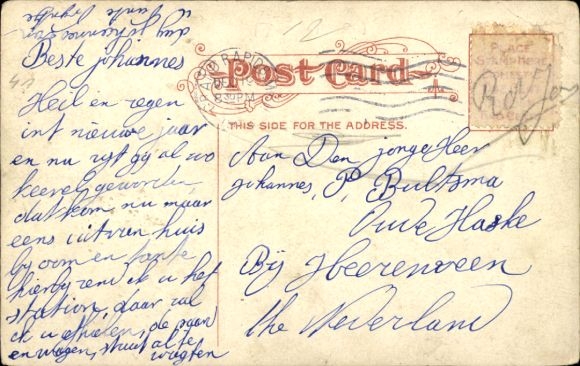 Beste johannes
Heil en zegen
int nieuwe jaar
en nu zyt gy al zo
geworden
dat kom nu maar
eens uit van huis
by oom en tante
hierby zend ik u het
station, daar zal
ik u afhalen, de paan
en wagen, staat al te
wagten
GRAND RAPIDS
Post Card
THIS SIDE FOR THE ADDRESS.
PLACE
STAMP HERE
Aan Den jonge Heer
johannes, P, Bultsma
Oude Haske
Bij Heerenveen
the Nederland